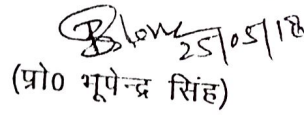 25/05/18
(प्रो० भूपेन्द्र सिंह)